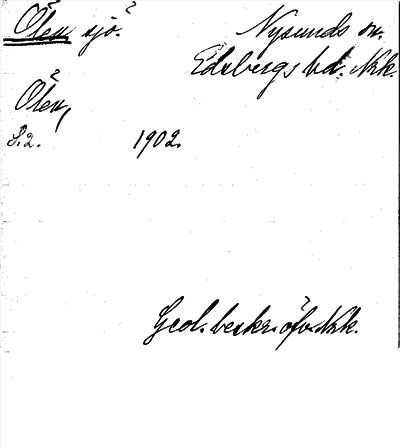 Ölen, sjö.
Nysunds sn.
Edsbergs hd. Nkk.
Ölen,
S. 2. 1902.
Geol. beskr. öfv. Nkk.